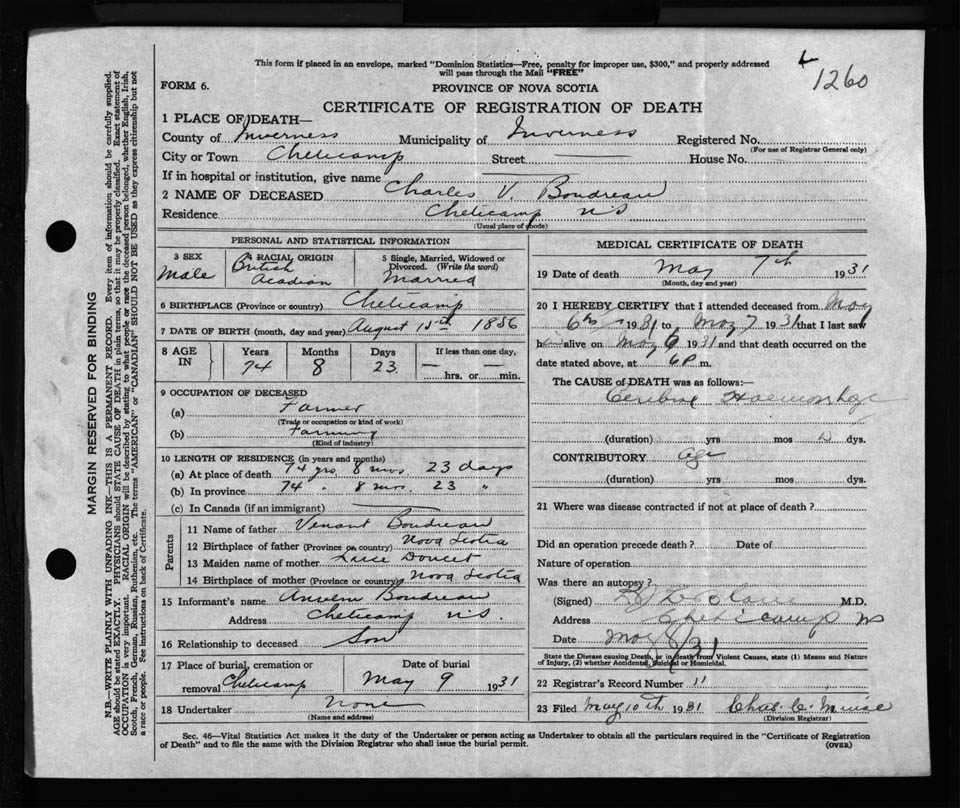 This form if placed in an envelope, marked "Dominion Statistics—Free, penalty for improper use, $300," and properly addressed
will pass through the Mail "FREE"
1260
FORM 6.
PROVINCE OF NOVA SCOTIA
CERTIFICATE OF REGISTRATION OF DEATH
1 PLACE OF DEATH—
County of Inverness Municipality of Inverness Registered No.
(For use of Registrar General only)
City or Town Cheticamp Street House No.
If in hospital or institution, give name
2 NAME OF DECEASED Charles V. Boudreau
Residence Cheticamp NS
(Usual place of abode)
PERSONAL AND STATISTICAL INFORMATION
3 SEX Male
4 RACIAL ORIGIN British Acadian
5 Single, Married, Widowed or Divorced. (Write the word) Married
6 BIRTHPLACE (Province or country) Cheticamp
7 DATE OF BIRTH (month, day and year) August 15th 1856
8 AGE IN Years Months Days If less than one day,
74 8 23 — hrs. or — min.
9 OCCUPATION OF DECEASED
(a) Farmer
(Trade or occupation or kind of work)
(b) Farming
(Kind of industry)
10 LENGTH OF RESIDENCE (in years and months)
(a) At place of death 74 yrs 8 mos 23 days
(b) In province 74 " 8 mos. 23 "
(c) In Canada (if an immigrant)
Parents
11 Name of father Venant Boudreau
12 Birthplace of father (Province or country) Nova Scotia
13 Maiden name of mother Doucet
14 Birthplace of mother (Province or country) Nova Scotia
15 Informant's name Anselm Boudreau
Address Cheticamp N.S.
16 Relationship to deceased Son
17 Place of burial, cremation or removal Cheticamp
Date of burial May 9 1931
18 Undertaker None
(Name and address)
MEDICAL CERTIFICATE OF DEATH
19 Date of death May 7th 1931
(Month, day and year)
20 I HEREBY CERTIFY that I attended deceased from May
1931 to May 7 1931 that I last saw
him alive on May 1931 and that death occurred on the
date stated above, at 6 P. m.
The CAUSE OF DEATH was as follows:—
Cerebral Haemorrhage
(duration) yrs mos dys.
CONTRIBUTORY age
(duration) yrs mos dys.
21 Where was disease contracted if not at place of death?
Did an operation precede death? Date of
Nature of operation
Was there an autopsy?
(Signed) M.D.
Address Cheticamp NS
Date May 8/31
State the Disease causing Death, or in death from Violent Causes, state (1) Means and Nature
of Injury, (2) whether Accidental, Suicidal or Homicidal.
22 Registrar's Record Number 11
23 Filed May 10th 1931 Chas. C.
(Division Registrar)
Sec. 46—Vital Statistics Act makes it the duty of the Undertaker or person acting as Undertaker to obtain all the particulars required in the "Certificate of Registration
of Death" and to file the same with the Division Registrar who shall issue the burial permit.
(OVER)
MARGIN RESERVED FOR BINDING
N.B.—WRITE PLAINLY WITH UNFADING INK—THIS IS A PERMANENT RECORD. Every item of information should be carefully supplied.
AGE should be stated EXACTLY. PHYSICIANS should STATE CAUSE OF DEATH in plain terms, so that it may be properly classified. Exact statement of
OCCUPATION is very important. RACIAL ORIGIN will be described by stating to what people or race the deceased person belonged, whether English, Irish,
Scotch, French, German, Russian, Ruthenian, etc. The terms "AMERICAN" or "CANADIAN" SHOULD NOT BE USED as they express citizenship but not
a race or people. Fee instructions on back of Certificate.